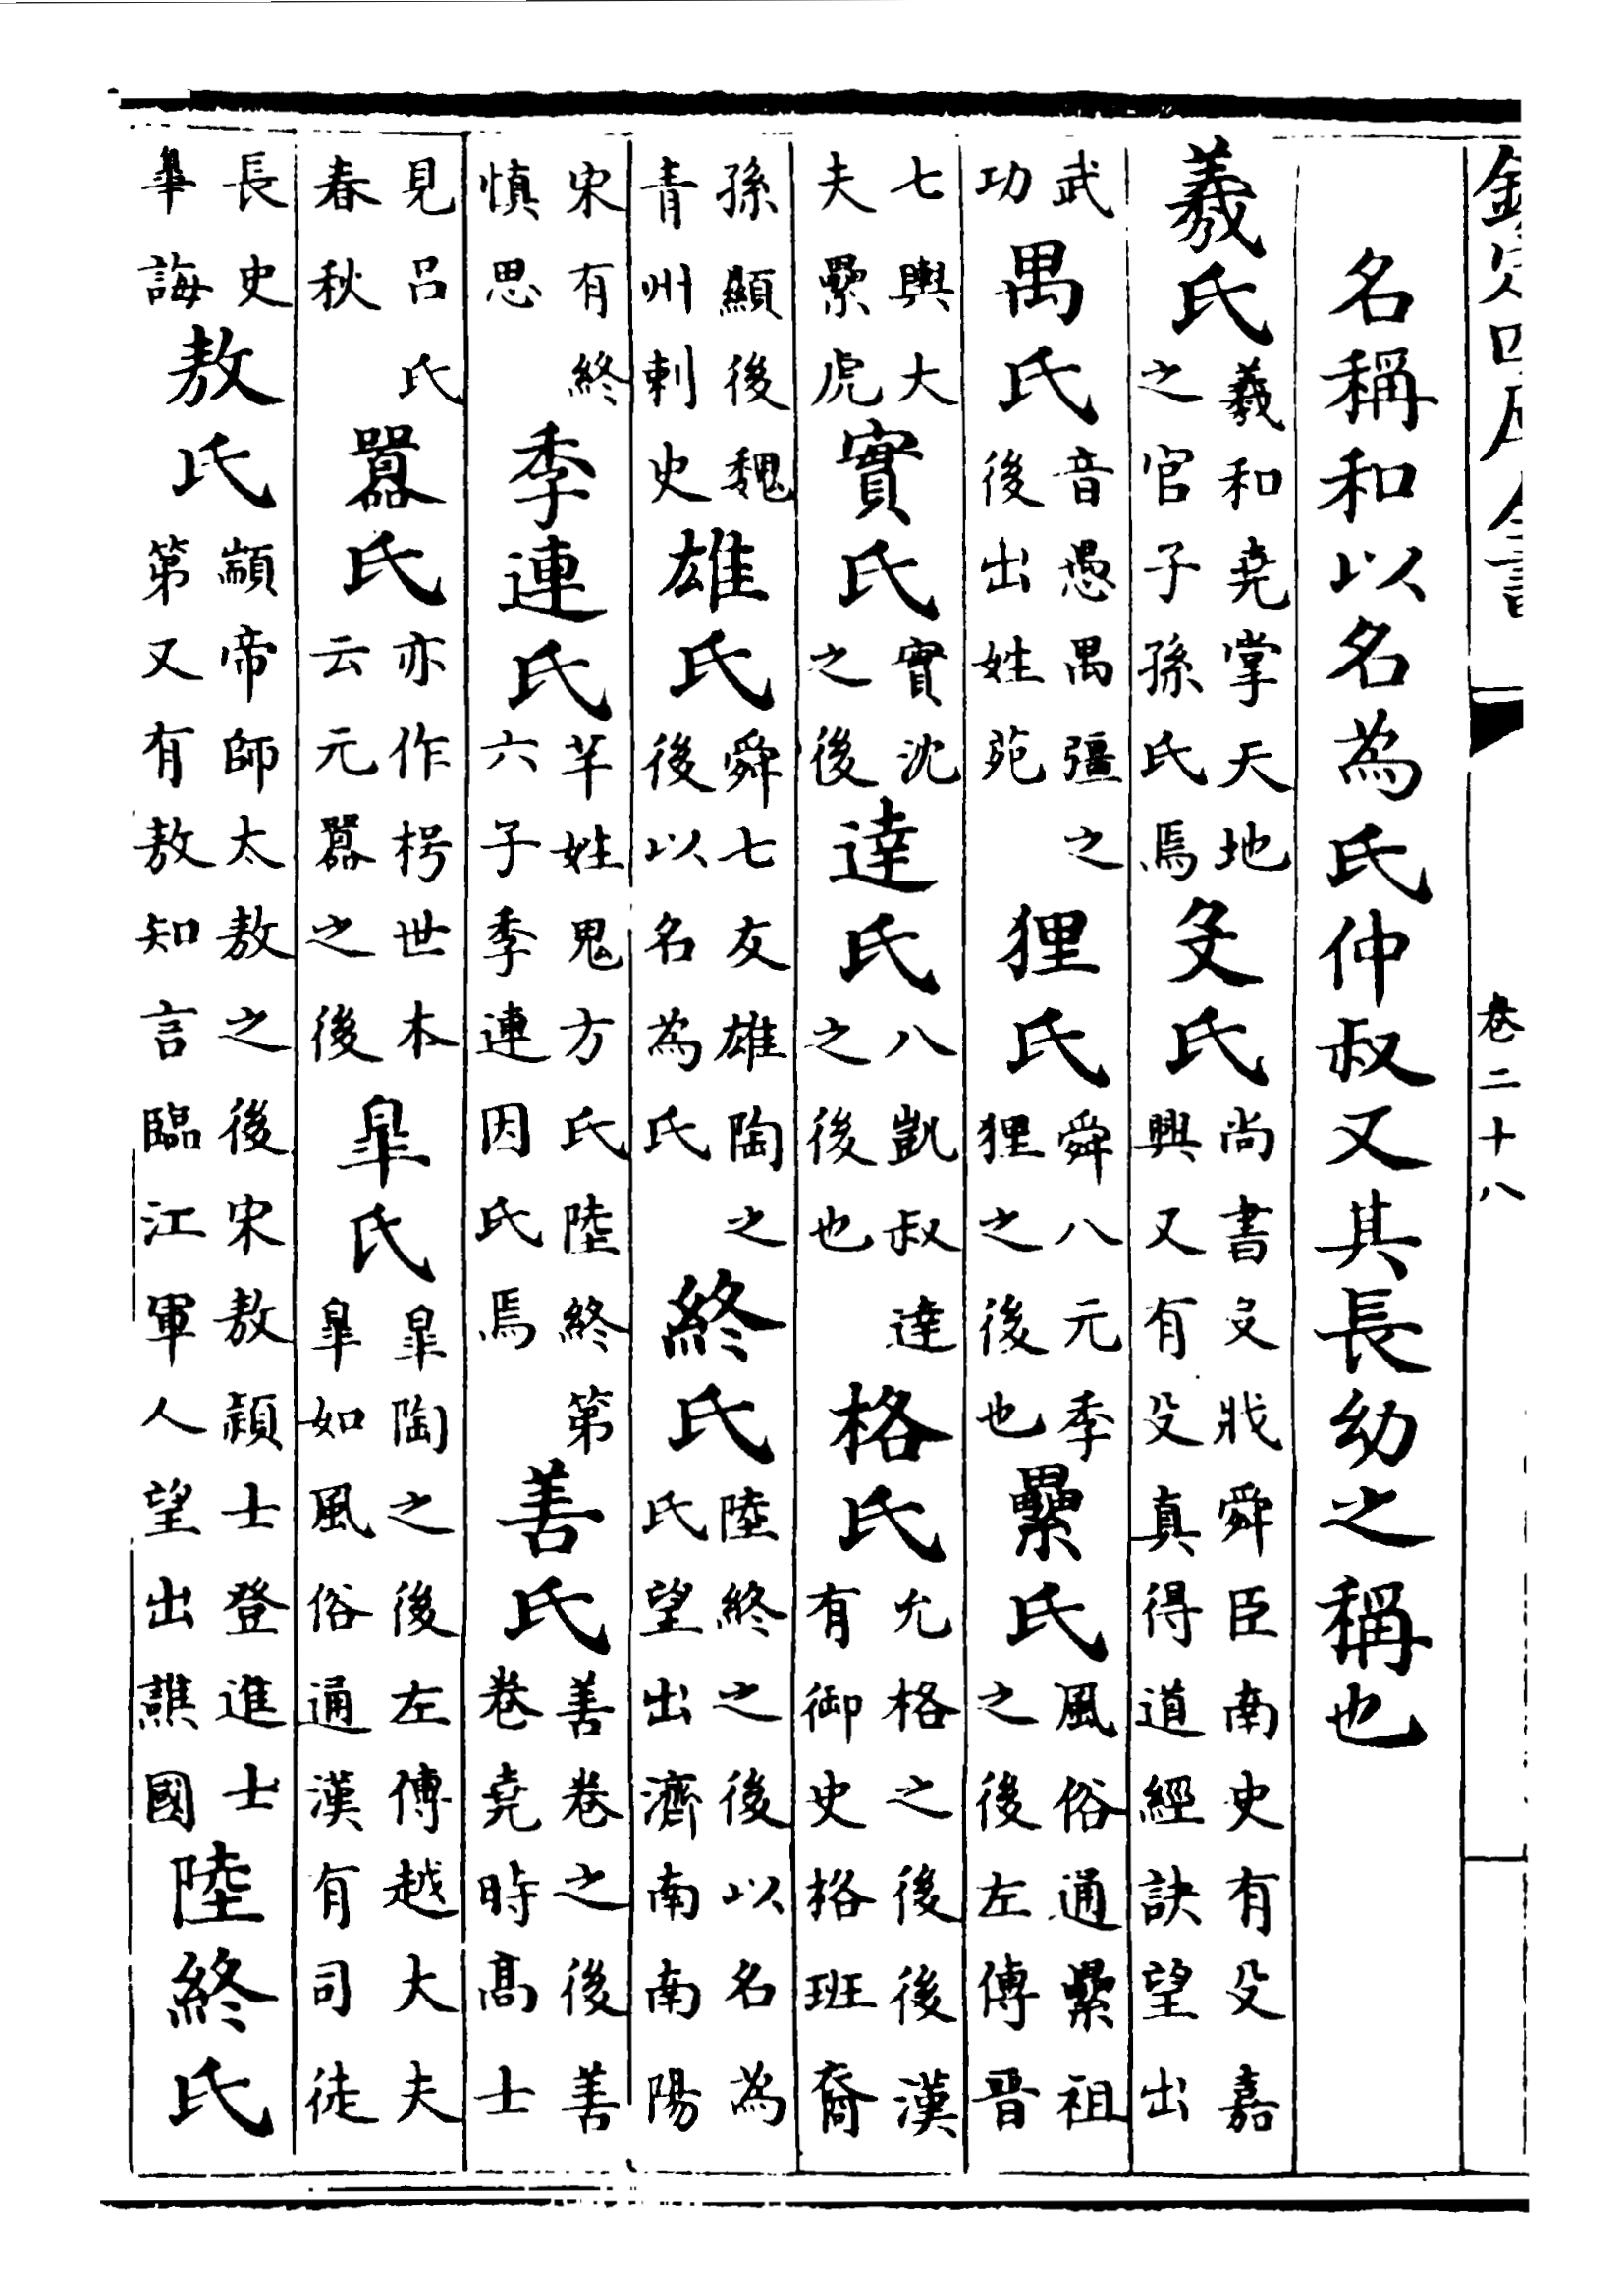 欽定四庫全書 卷二十八
名稱和以名為氏仲叔又其長幼之稱也
羲氏羲和堯掌天地之官子孫氏焉殳氏尚書殳戕舜臣南史有殳嘉興又有殳真得道經訣望出
武功禺氏音愚禺彊之後出姓苑狸氏舜八元季狸之後也纍氏風俗通纍祖之後左傳晉
七輿大夫纍虎實氏實沈之後達氏八凱叔達之後也格氏允格之後後漢有御史格班裔
孫顯後魏青州刺史雄氏舜七友雄陶之後以名為氏終氏陸終之後以名為氏望出濟南南陽
宋有終慎思季連氏芊姓鬼方氏陸終第六子季連因氏焉善氏善卷之後善卷堯時髙士
見呂氏春秋嚻氏亦作枵世本云元嚻之後皐氏皐陶之後左傳越大夫皐如風俗通漢有司徒
長史皐誨敖氏顓帝師太敖之後宋敖潁士登進士第又有敖知言臨江軍人望出譙國陸終氏